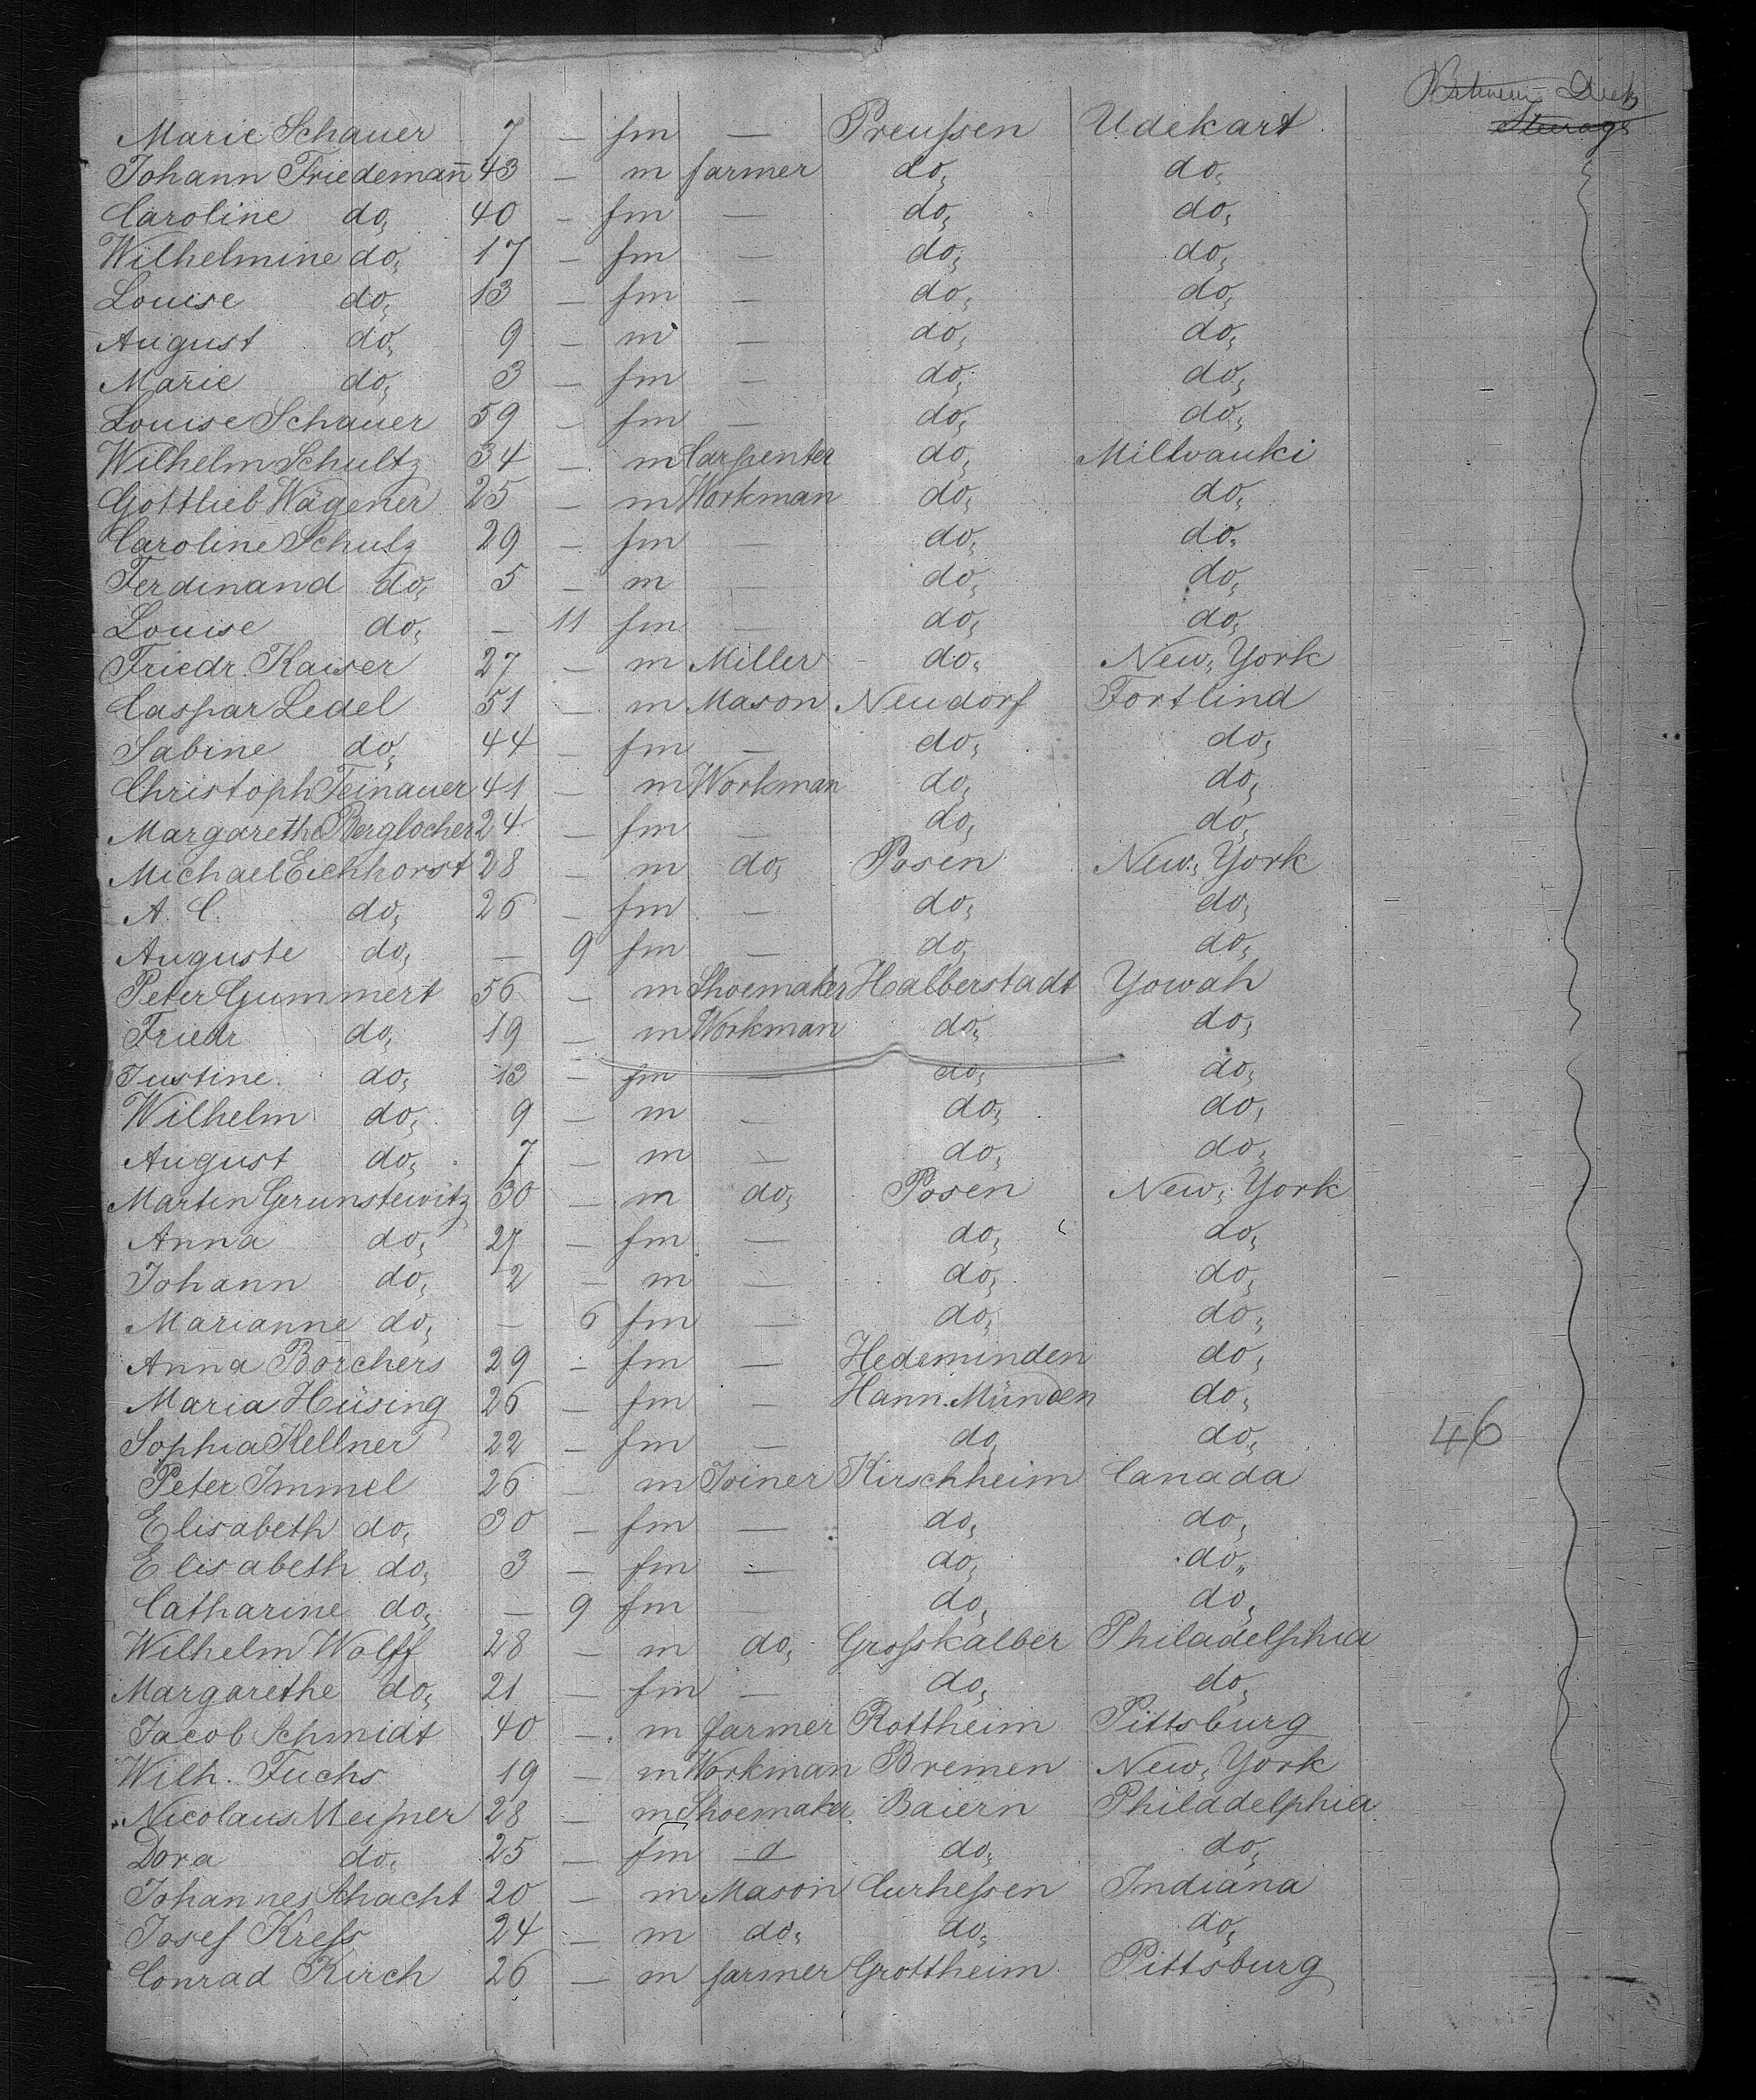 Between Deck
Steerage
Marie Schauer 7 — fm — Preußen Udekart
Johann Friedemañ 43 — m farmer do, do,
Caroline do, 40 — fm — do, do,
Wilhelmine do, 17 — fm — do, do,
Louise do, 13 — fm — do, do,
August do, 9 — m — do, do,
Marie do, 3 — fm — do, do,
Louise Schauer 59 — fm — do, do,
Wilhelm Schultz 34 — m Carpenter do, Millvauki
Gottlieb Wägener 25 — m Workman do, do,
Caroline Schulz 29 — fm — do, do,
Ferdinand do, 5 — m — do, do,
Louise do, — 11 fm — do, do,
Friedr. Kaiser 27 — m Miller do, New, York
Caspar Ledel 51 — m Mason Neudorf Fortlind
Sabine do, 44 — fm — do, do,
Christoph Feinauer 41 — m Workman do, do,
Margarethe Berglocher 24 — fm — do, do,
Michael Eichhorst 28 — m do, Posen New, York
A. C. do, 26 — fm — do, do,
Auguste do, — 9 fm — do, do,
Peter Gummert 56 — m Shoemaker Halberstadt Yowah
Friedr do, 19 — m Workman do, do,
Justine do, 13 — fm — do, do,
Wilhelm do, 9 — m — do, do,
August do, 7 — m — do, do,
Martin Grunstewitz 30 — m do, Posen New, York
Anna do, 27 — fm — do, do,
Johann do, 2 — m — do, do,
Marianne do, — 6 fm — do, do,
Anna Borchers 29 — fm — Hedeminden do,
Maria Hüsing 26 — fm — Hann. Münden do,
Sophia Kellner 22 — fm — do, do, 46
Peter Immel 26 — m Joiner Kirschheim Canada
Elisabeth do, 30 — fm — do, do,
Elisabeth do, 3 — fm — do, do,
Catharine do, — 9 fm — do, do,
Wilhelm Wolff 28 — m do, Großkalber Philadelphia
Margarethe do, 21 — fm — do, do,
Jacob Schmidt 40 — m farmer Rottheim Pittsburg
Wilh. Fuchs 19 — m Workman Bremen New, York
Nicolaus Meißner 28 — m Shoemaker Baiern Philadelphia
Dora do, 25 — fm — do, do,
Johannes Schacht 20 — m Mason Curheßen Indiana
Josef Kreß 24 — m do, do, do,
Conrad Kirch 26 — m farmer Grottheim Pittsburg